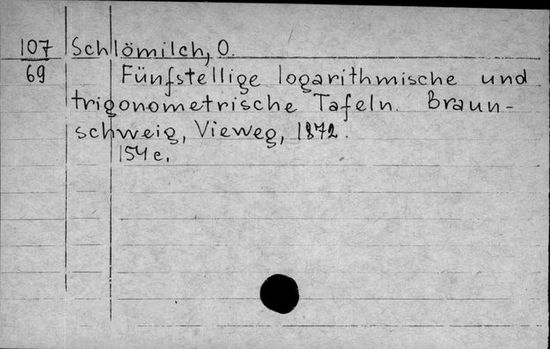 107 Schlömilch, O.
69 Fünfstellige logarithmische und
trigonometrische Tafeln. Braun-
schweig, Vieweg, 1872.
154 e.